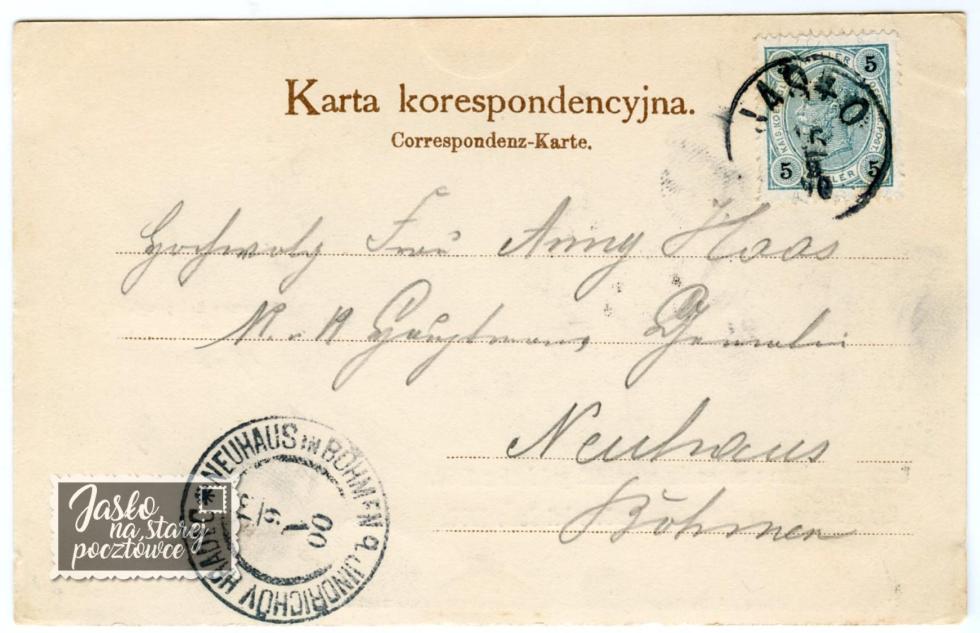 Karta korespondencyjna.
Correspondenz-Karte.
5 5 5
HELLER
JASŁO
Frau Anny Haas
Hauptmanns Gemalin
Neuhaus
Böhmen
NEUHAUS IN BÖHMEN
JINDŘICHŮV HRADEC
00
Jasło
na starej
pocztówce